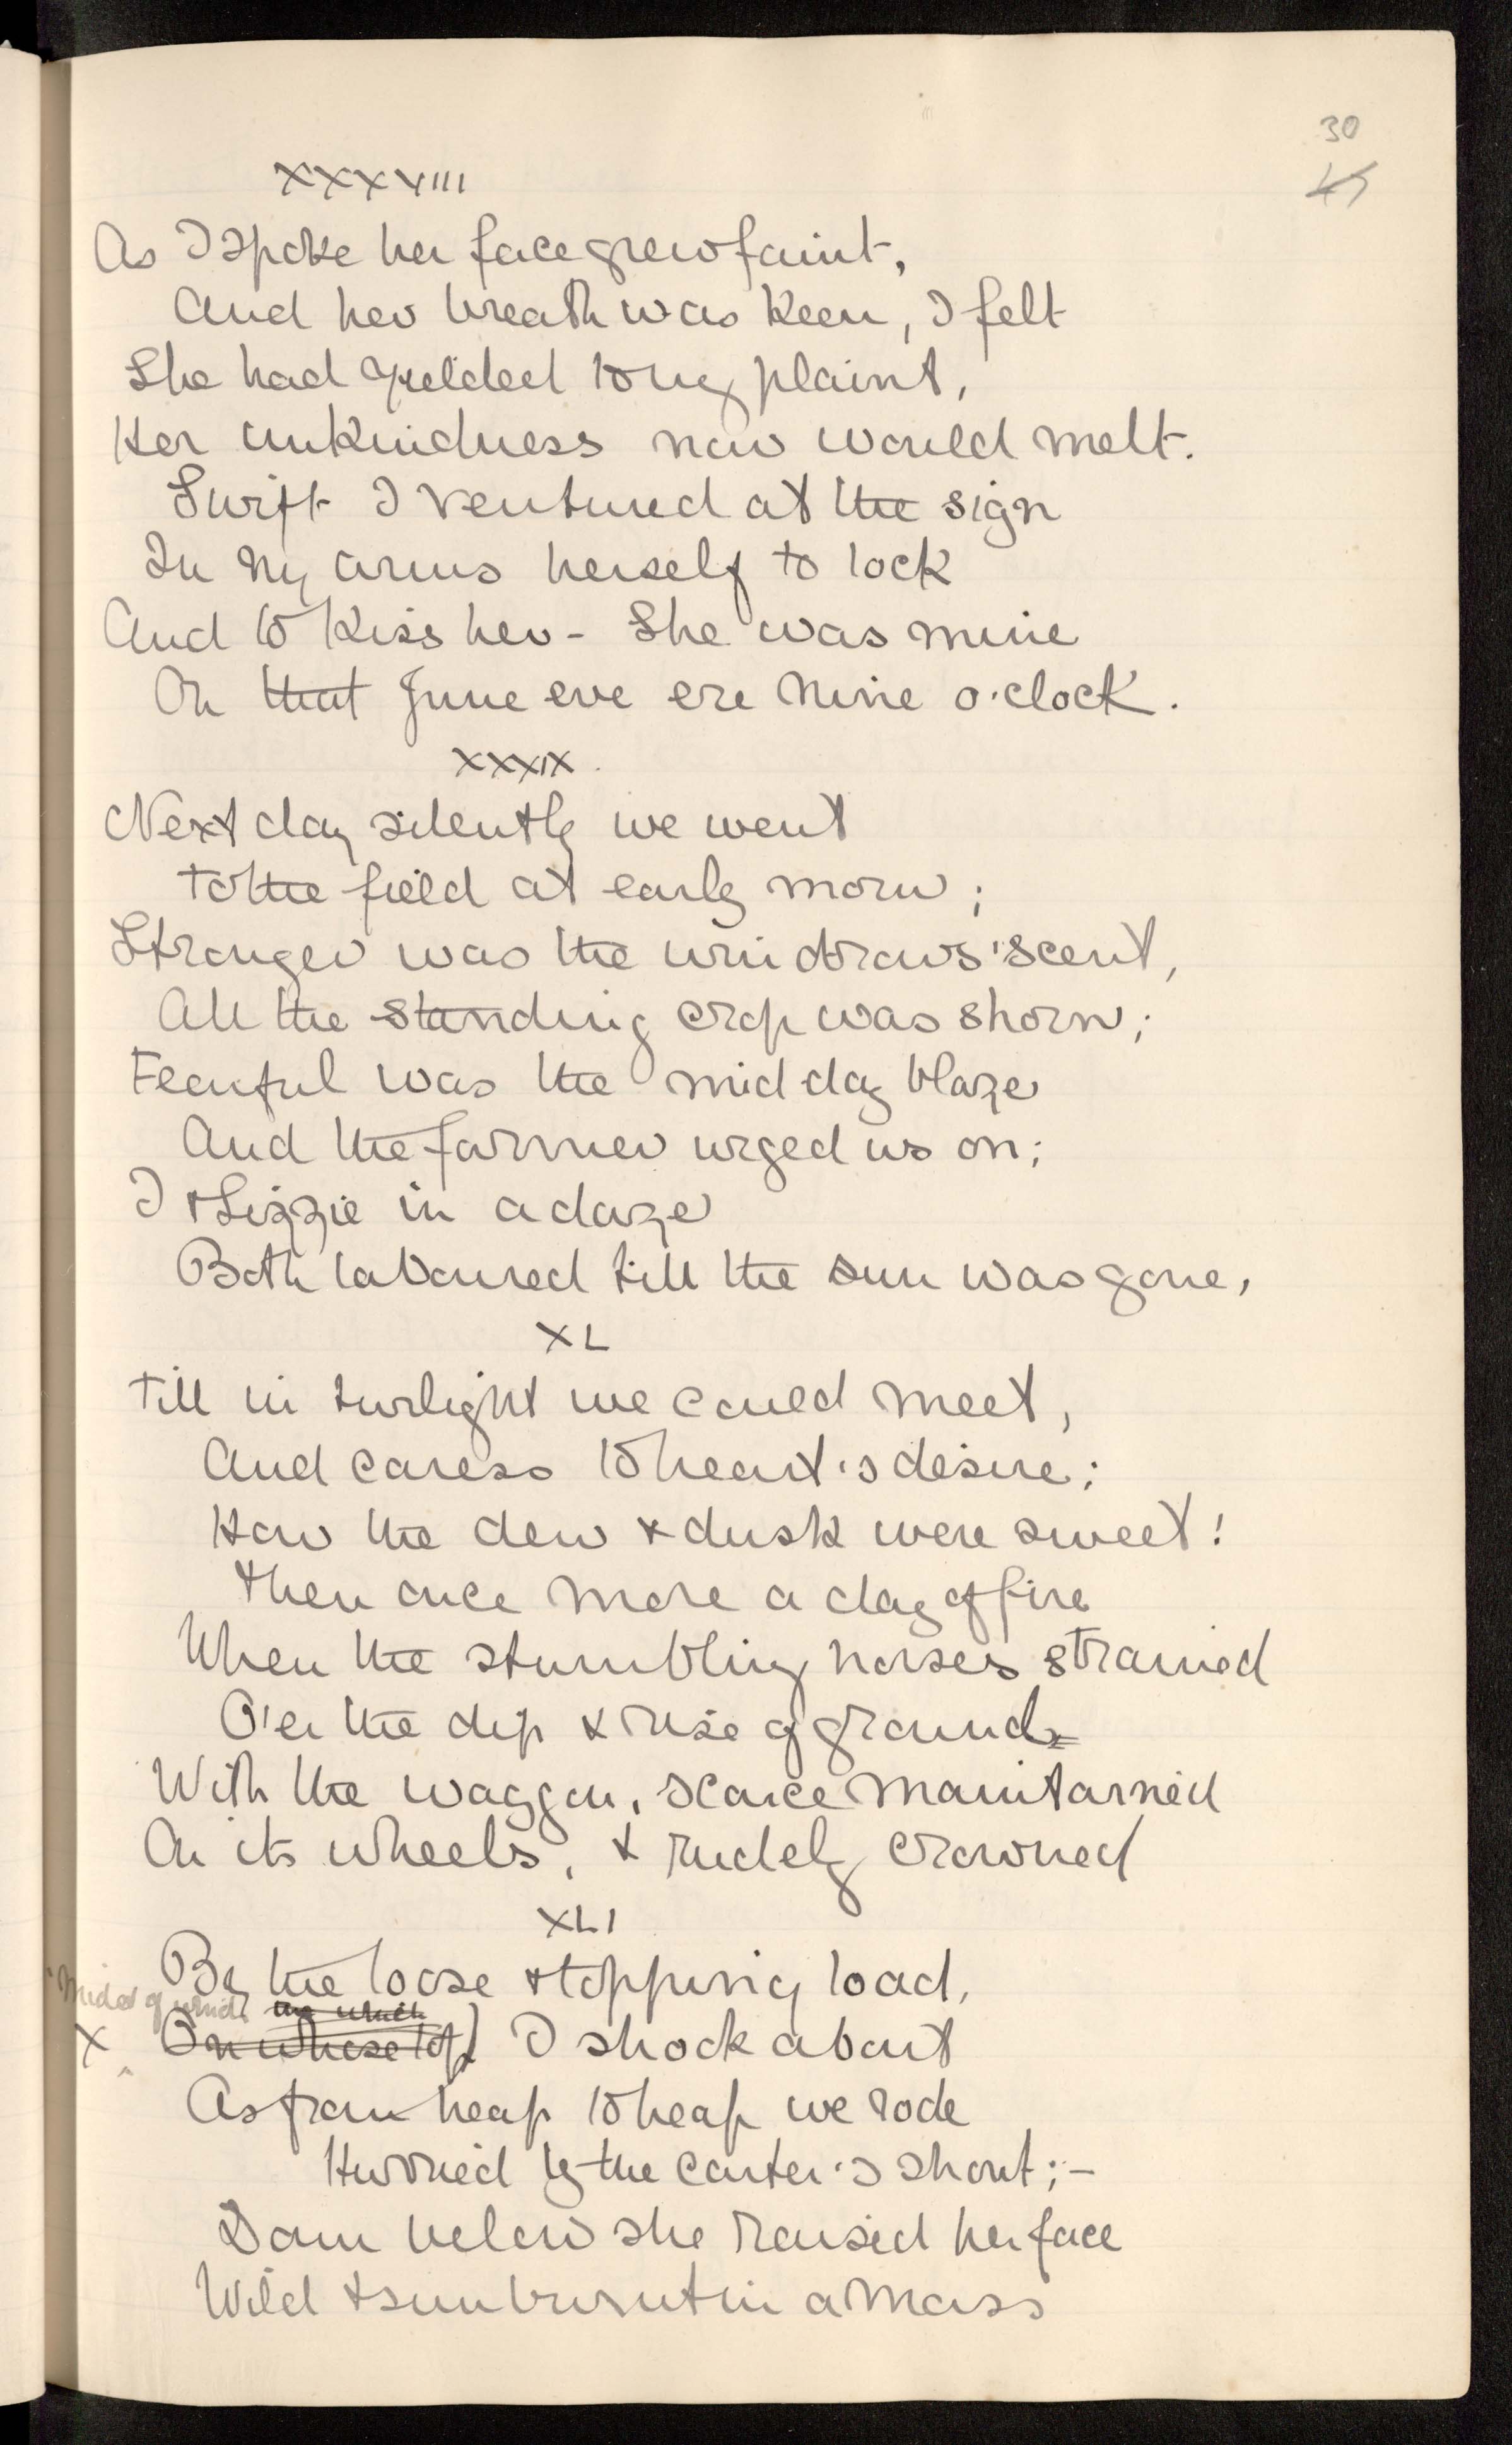 30
45
XXXVIII
As I spoke her face grew faint,
And her breath was keen, I felt
She had yielded to my plaint,
Her unkindness now would melt.
Swift I ventured at the sign
In my arms herself to lock
And to kiss her - She was mine
On that June eve ere nine o'clock.
XXXIX.
Next day silently we went
To the field at early morn;
Stronger was the windrows' scent,
All the standing crop was shorn;
Fearful was the mid day blaze
And the farmer urged us on;
I & Lizzie in a daze
Both laboured till the sun was gone,
XL
Till in twilight we could meet,
And caress to heart's desire;
How the dew & dusk were sweet!
Then once more a day of fire
When the stumbling horses strained
O'er the dip & rise of ground
With the waggon, scarce maintained
On its wheels, & rudely crowned
XLI
By the loose & topping load,
'Midst of which the which
X On whose top I shook about
As from heap to heap we rode
Hurried by the carter's shout; -
Down below she raised her face
Wild & sunburnt in a mass